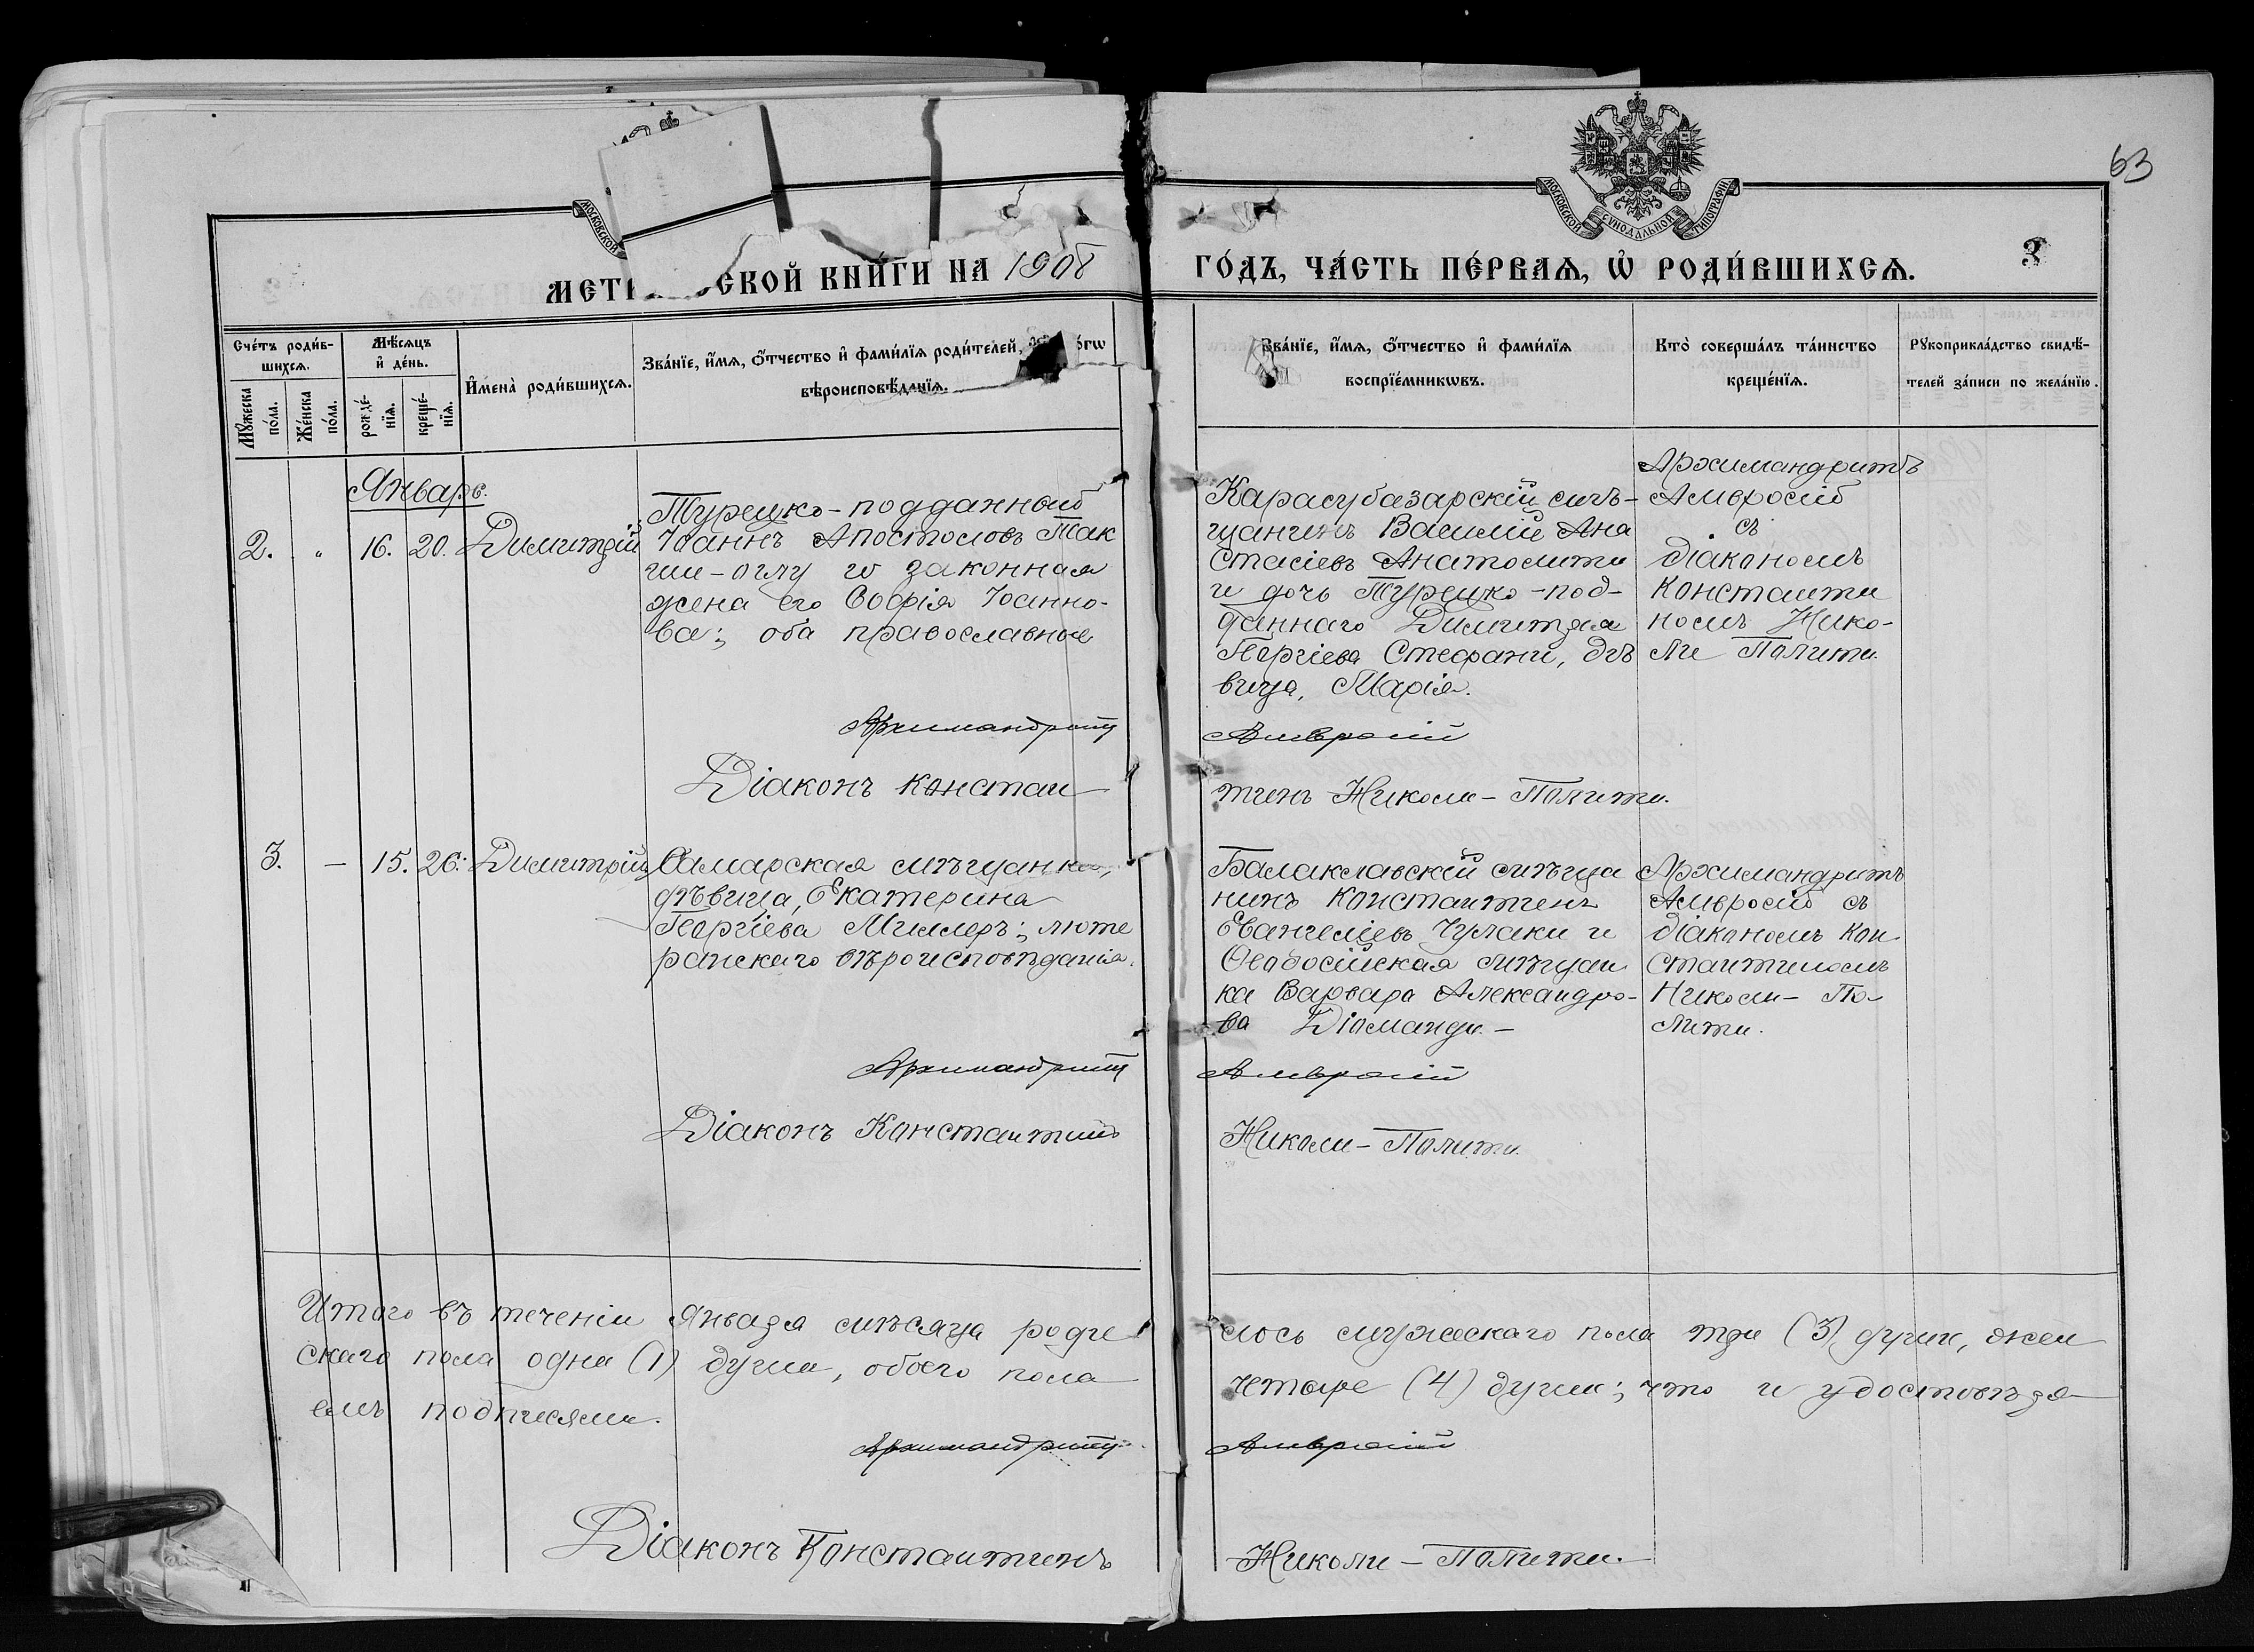 63
МОСКОВСКОЙ
МОСКОВСКОЙ СѴНОДАЛЬНОЙ ТИПОГРАФІИ
СКОЙ КНИ́ГИ НА 1908 ГО́ДЪ, ЧА́СТЬ ПЕ́РВАѦ, Ѡ҆ РОДИ́ВШИХСѦ.
3
Сче́тъ роди́в-
шихсѧ.
Мꙋ́жеска по́ла.
Же́нска по́ла.
Мѣ́сѧцъ
и҆ де́нь.
рожде́-нїѧ.
креще́-нїѧ.
И҆мена̀ роди́вшихсѧ.
Зва́нїе, и҆́мѧ, ѻ҆́тчество и҆ фами́лїѧ роди́телей,
вѣроисповѣ́данїѧ.
Зва́нїе, и҆́мѧ, ѻ҆́тчество и҆ фами́лїѧ
воспрїе́мникѡвъ.
Кто̀ соверша́лъ та́инство
креще́нїѧ.
Рꙋкоприкла́дство свидѣ́-
телей за́писи по жела́нїю.
Январь.
2. „ 16. 20. Димитрій
Турецко-подданный
Іоаннъ Апостоловъ Так
чи-оглу и законная
жена его Софія Іоанно-
ва; оба православные
Карасубазарскій мѣ-
щанинъ Василій Ана
стасіевъ Анатолити
и дочь Турецко-под-
даннаго Димитрія
Георгіева Стефани, дѣ
вица, Марія.
Архимандритъ
Амвросій
съ
діакономъ
Константи
номъ Нико-
ли Полити.
Архимандритъ Амвросій
Діаконъ Констан-
тинъ Николи-Полити.
3. — 15. 26. Димитрій
Самарская мѣщанка,
дѣвица, Екатерина
Георгіева Миллеръ; люте
ранскаго вѣроисповѣданія.
Балаклавскій мѣща
нинъ Константинъ
Евангеліевъ Чулаки и
Ѳеодосійская мѣщан
ка Варвара Александро-
ва Діоманди.-
Архимандритъ
Амвросій съ
діакономъ Кон
стантиномъ
Николи-По-
лити.
Архимандритъ Амвросій
Діаконъ Константинъ Николи-Полити.
Итого въ теченіи Января мѣсяца роди лось мужескаго пола три (3) души, жен
скаго пола одна (1) душа, обоего пола четыре (4) души; что и удостовѣря-
емъ подписями.
Архимандритъ Амвросій
Діаконъ Константинъ Николи-Полити.